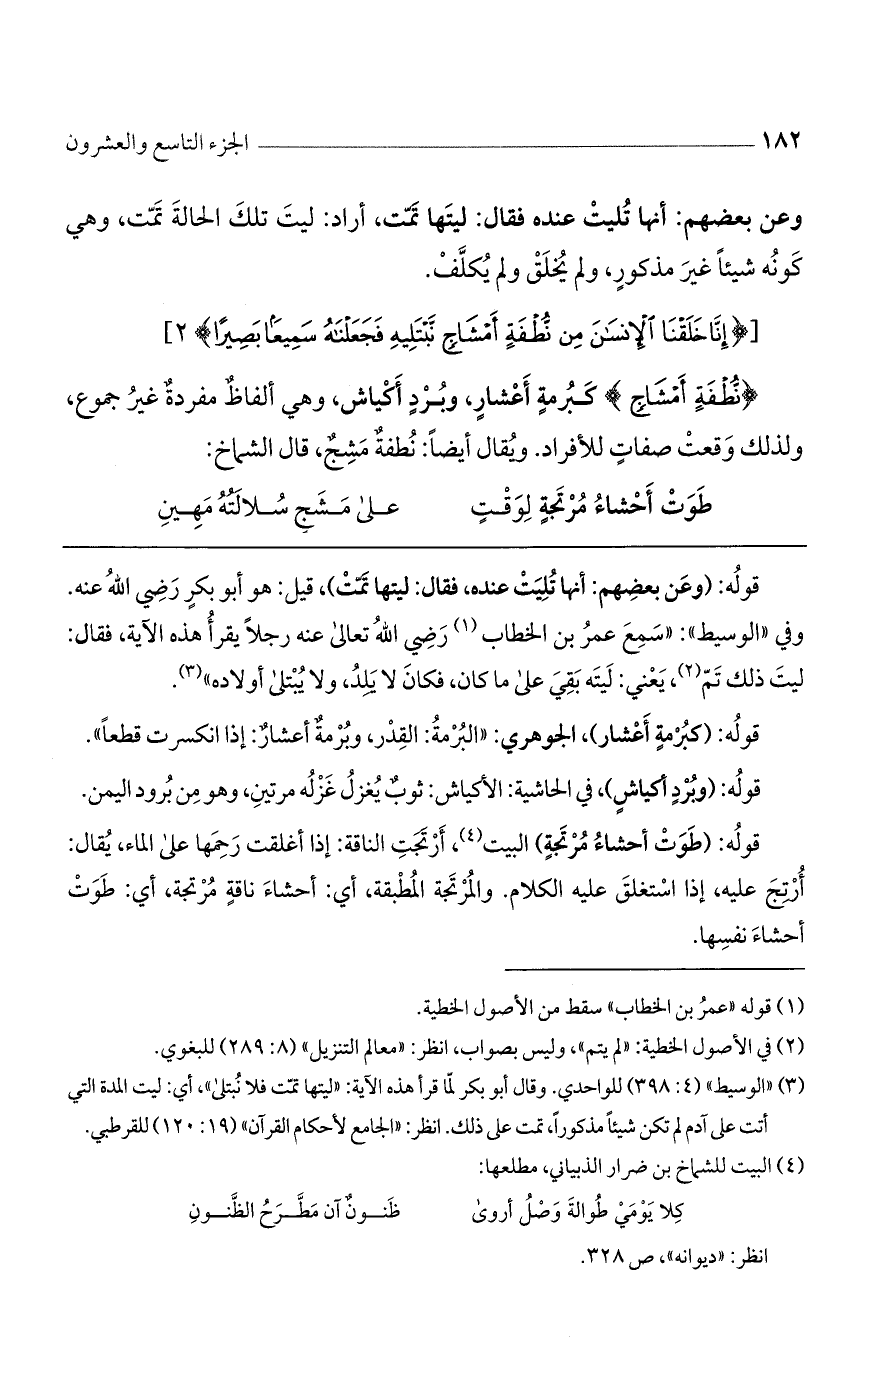 ١٨٢ ــــــــــــــــــــ الجزء التاسع والعشرون
وعن بعضهم: أنها تُليتْ عنده فقال: ليتَها تمَّت، أراد: ليتَ تلكَ الحالةَ تمَّت، وهي
كَونُه شيئاً غيرَ مذكورٍ، ولم يُخلَقْ ولم يُكلَّفْ.
[﴿إِنَّا خَلَقْنَا ٱلْإِنسَٰنَ مِن نُّطْفَةٍ أَمْشَاجٍ نَّبْتَلِيهِ فَجَعَلْنَٰهُ سَمِيعًۢا بَصِيرًا﴾ ٢]
﴿نُّطْفَةٍ أَمْشَاجٍ﴾ كَبُرمةٍ أَعْشارٍ، وبُـرْدٍ أَكْياش، وهي ألفاظٌ مفردةٌ غيرُ جموع،
ولذلك وَقعتْ صفاتٍ للأفراد. ويُقال أيضاً: نُطفةٌ مَشِجٌ، قال الشماخ:
طَوَتْ أَحْشاءُ مُرْتَجةٍ لِوَقْـتٍ علىٰ مَـشَجٍ سُـلالَتُهُ مَهِـينِ
قولُه: (وعَن بعضِهم: أنها تُلِيَتْ عنده، فقال: ليتها تمّتْ)، قيل: هو أبو بكرٍ رَضِي اللهُ عنه.
وفي «الوسيط»: «سَمِعَ عمرُ بن الخطاب (١) رَضِي اللهُ تعالىٰ عنه رجلاً يقرأُ هذه الآية، فقال:
ليتَ ذلك تَمّ(٢)، يَعْني: لَيتَه بَقِيَ علىٰ ما كان، فكانَ لا يَلِدُ، ولا يُبْتلىٰ أولاده»(٣).
قولُه: (كبُرْمةٍ أَعْشار)، الجوهري: «البُرْمةُ: القِدْر، وبُرْمةٌ أعشارٌ: إذا انكسرت قطعاً».
قولُه: (وبُرْدٍ أكياشٍ)، في الحاشية: الأكياش: ثوبٌ يُغزلُ غَزْلُه مرتينِ، وهو مِن بُرود اليمن.
قولُه: (طَوَتْ أحشاءُ مُرْتَجةٍ) البيت(٤)، أَرْتَجَتِ الناقة: إذا أغلقت رَحِمَها علىٰ الماء، يُقال:
أُرْتِجَ عليه، إذا اسْتغلقَ عليه الكلام. والمُرْتَجة المُطْبقة، أي: أحشاءَ ناقةٍ مُرْتجة، أي: طَوَتْ
أحشاءَ نفسِها.
(١) قوله «عمرُ بن الخطاب» سقط من الأصول الخطية.
(٢) في الأصول الخطية: «لم يتم»، وليس بصواب، انظر: «معالم التنزيل» (٨: ٢٨٩) للبغوي.
(٣) «الوسيط» (٤: ٣٩٨) للواحدي. وقال أبو بكر لمّا قرأ هذه الآية: «ليتها تمّت فلا نُبتلىٰ»، أي: ليت المدة التي
أتت علىٰ آدم لم تكن شيئاً مذكوراً، تمت على ذلك. انظر: «الجامع لأحكام القرآن» (١٩: ١٢٠) للقرطبي.
(٤) البيت للشماخ بن ضرار الذبياني، مطلعها:
كِلا يَوْمَيْ طُوالةَ وَصْلُ أروىٰ ظَنـونٌ آن مَطَّـرَحُ الظَّنـونِ
انظر: «ديوانه»، ص ٣٢٨.